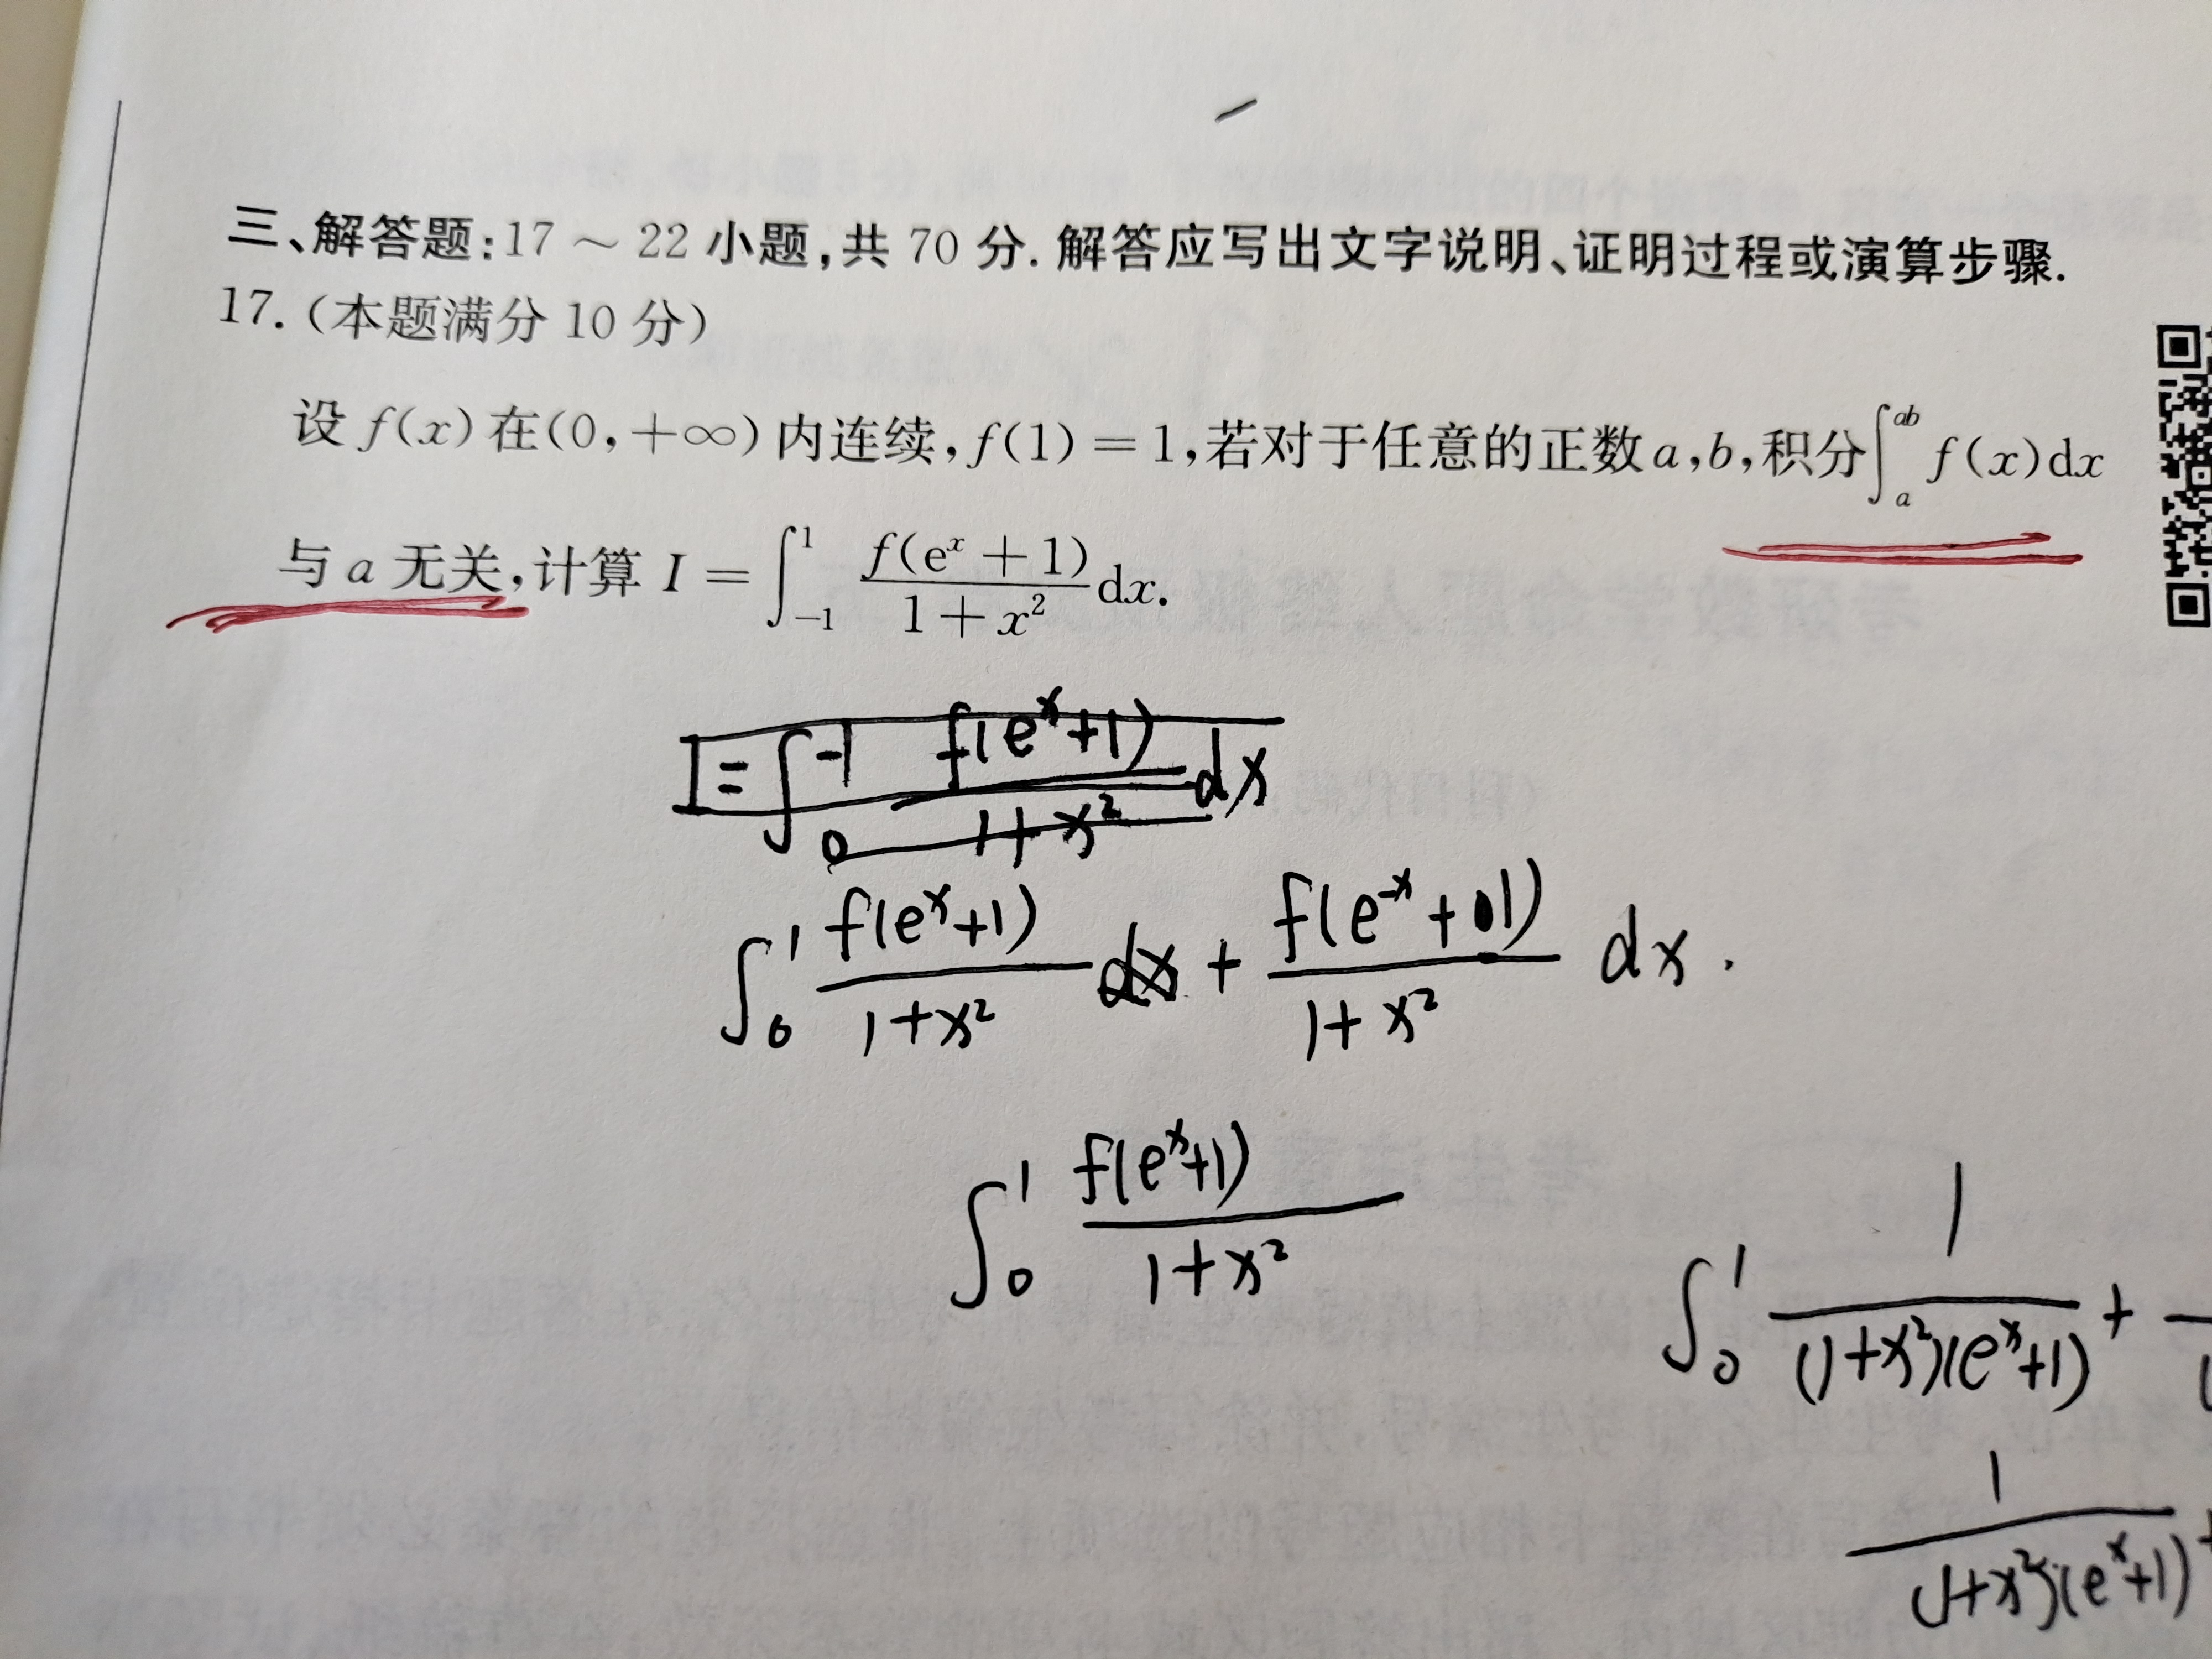 三、解答题:17 ～ 22 小题,共 70 分. 解答应写出文字说明、证明过程或演算步骤.
17.(本题满分 10 分)
设 f(x) 在(0,+∞) 内连续,f(1) = 1,若对于任意的正数 a,b,积分∫_a^{ab} f(x)dx
与 a 无关,计算 I = ∫_{-1}^{1} \frac{f(e^x + 1)}{1 + x^2} dx.
I = ∫_0^{-1} \frac{f(e^x+1)}{1+x^2} dx
∫_0^1 \frac{f(e^x+1)}{1+x^2} dx + \frac{f(e^{-x}+1)}{1+x^2} dx.
∫_0^1 \frac{f(e^x+1)}{1+x^2}
∫_0^1 \frac{1}{(1+x^2)(e^x+1)} +
\frac{1}{(1+x^2)(e^x+1)} +